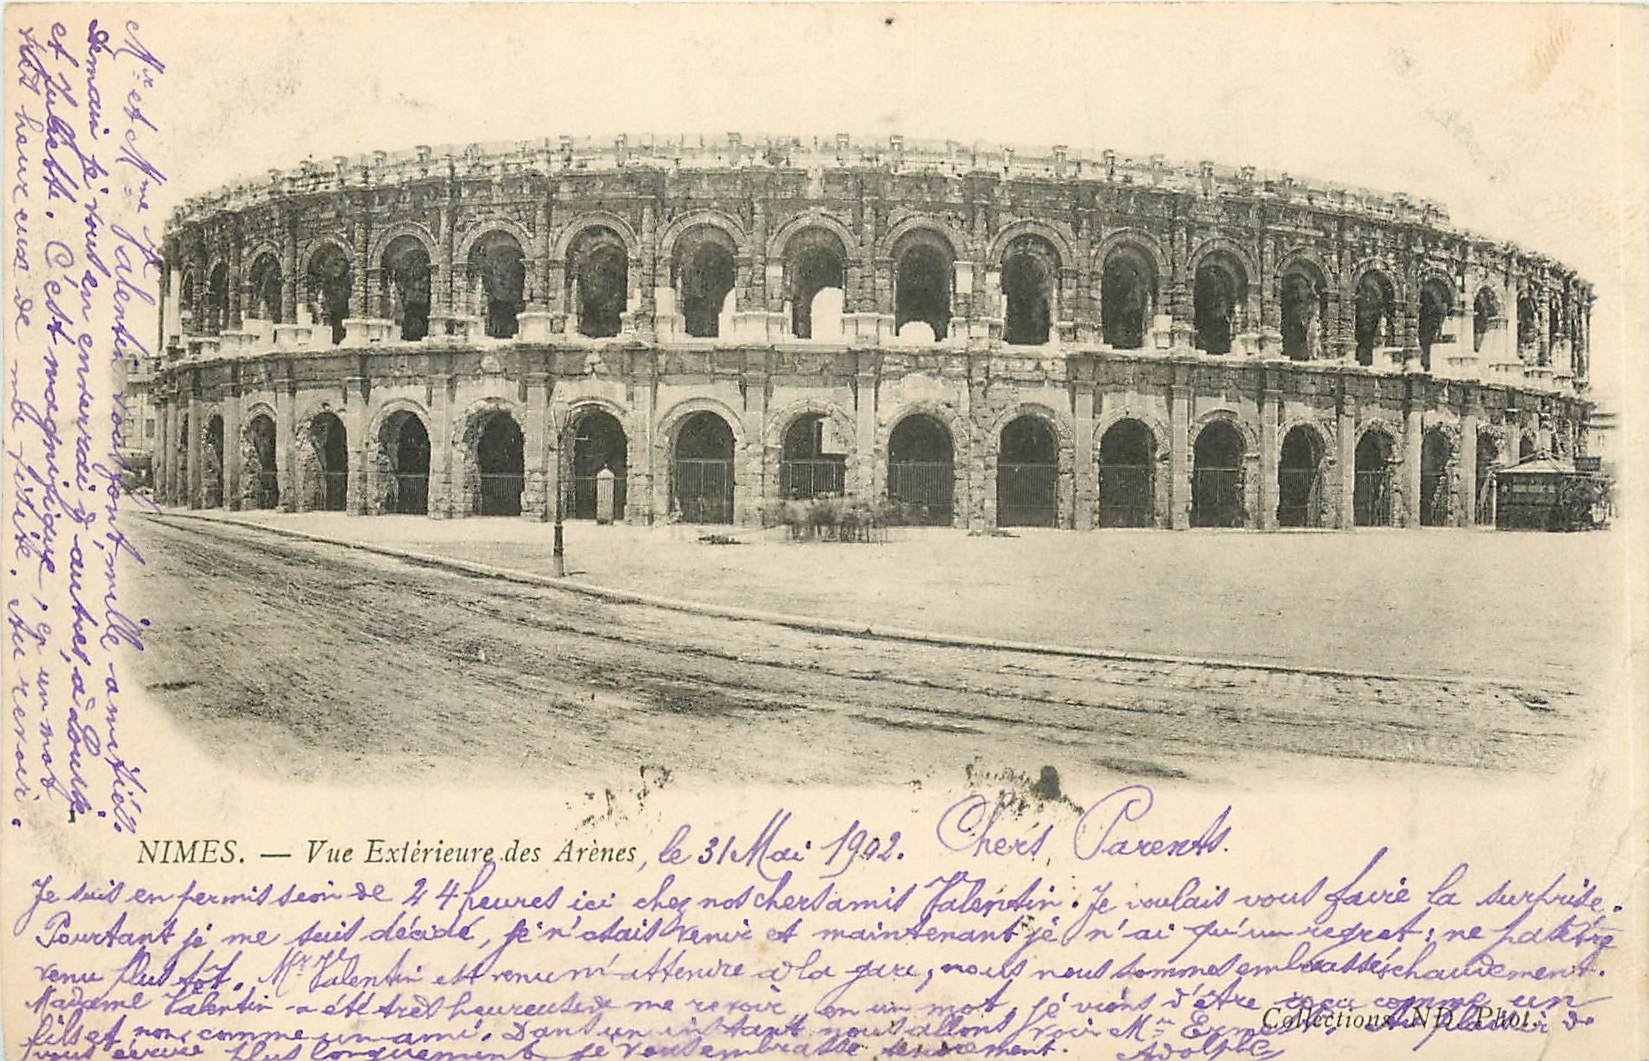 NIMES. — Vue Extérieure des Arènes, le 31 Mai 1902. Chers Parents.
Je suis en permission de 24 heures ici chez nos chers amis Valentin. Je voulais vous faire la surprise.
Pourtant je me suis décidé, je n'osais venir et maintenant je n'ai qu'un regret: ne pas être
venu plus tôt. Mr Valentin est venu m'attendre à la gare, nous nous sommes embrassés chaudement.
Madame Valentin a été très heureuse de me revoir, en un mot, je viens d'être reçu comme un
fils et non comme un ami. Dans un instant nous allons voir Mme
vous écrire plus longuement je vous embrasse tendrement. Adolphe
Collections ND. Phot.
Mr et Mme Valentin vous font mille amitiés.
Demain je vous en enverrai d'autres, à Louise
et Juliette. C'est magnifique, en un mot
très heureux de ma visite. Au revoir.